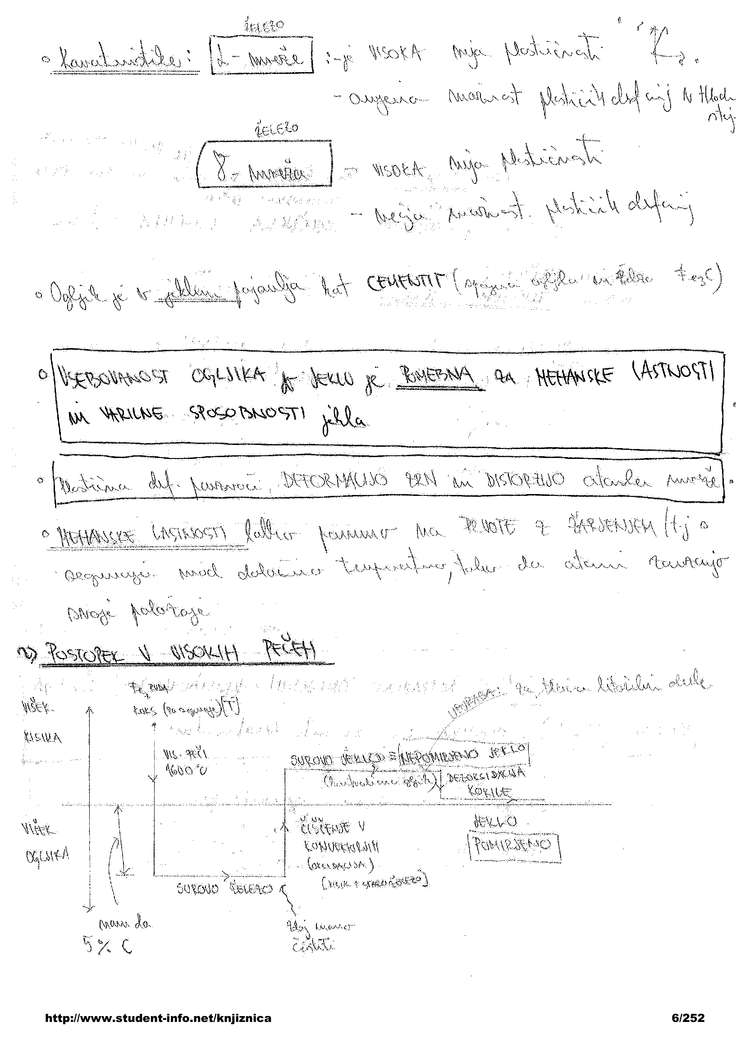 ŽELEZO
• Karakteristike: α - mreža :- je VISOKA meja plastičnosti
- omejena možnost plastičnih deformacij v hladnem stanju
ŽELEZO
γ - mreža - VISOKA meja plastičnosti
- večja možnost plastičnih deformacij
• Ogljik je v jeklenu pojavlja kot CEMENTIT (spojina ogljika in železa Fe3C)
• VSEBOVANOST OGLJIKA v JEKLU je POMEBNA za MEHANSKE LASTNOSTI
in VARILNE SPOSOBNOSTI jekla
• Plastična def. povzroči DEFORMACIJO ZRN in DISTORZIJO atomske mreže.
• MEHANSKE LASTNOSTI lahko povrnemo na PRVOTE z ŽARJENJEM (t.j.
segrevanje nad določeno temperaturo, tako da atomi zavzamejo
svoje položaje
2) POSTOPEK V VISOKIH PEČEH
VIŠEK
KISIKA
Fe RUDA
KOKS (za segrevanje) [T]
VIS. PEČI
1600 °C
UPORABA:
SUROVO JEKLO ≡ NEPOMIRJENO JEKLO
DEZOKSIDACIJA
KOKILE
VIŠEK
OGLJIKA
ČIŠČENJE V
KONVERTORJIH
(OKSIDACIJA)
[KISIK + STARO ŽELEZO]
JEKLO
POMIRJENO
SUROVO ŽELEZO
nam da
5% C
zdaj mamo
čistiti
http://www.student-info.net/knjiznica 6/252